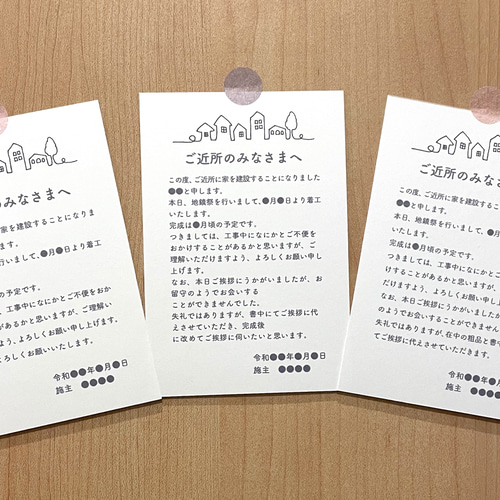 のみなさまへ
家を建設することになりま
ます。
祭を行いまして、●月●日より着工
の予定です。
工事中になにかとご不便をおか
があるかと思いますが、ご理解い
よう、よろしくお願い申し上げます。
よろしくお願いいたします。
令和●●年●月●日
施主 ●●●●
ご近所のみなさまへ
この度、ご近所に家を建設することになりました
●●と申します。
本日、地鎮祭を行いまして、●月●日より着工
いたします。
完成は●月頃の予定です。
つきましては、工事中になにかとご不便を
おかけすることがあるかと思いますが、ご
理解いただけますよう、よろしくお願い申し
上げます。
なお、本日ご挨拶にうかがいましたが、お
留守のようでお会いする
ことができませんでした。
失礼ではありますが、書中にてご挨拶に代
えさせていただき、完成後
に改めてご挨拶に伺いたいと思います。
令和●●年●月●日
施主 ●●●●
ご近所のみなさ
この度、ご近所に家を建設することになり
●●と申します。
本日、地鎮祭を行いまして、●月●
いたします。
完成は●月頃の予定です。
つきましては、工事中になにかとご不便
けすることがあるかと思いますが、
だけますよう、よろしくお願い申し上
なお、本日ご挨拶にうかがいましたが
のようでお会いすることができません
失礼ではありますが、在中の粗品と書中
てご挨拶に代えさせていただきます。
令和●●年●月
施主 ●●●●